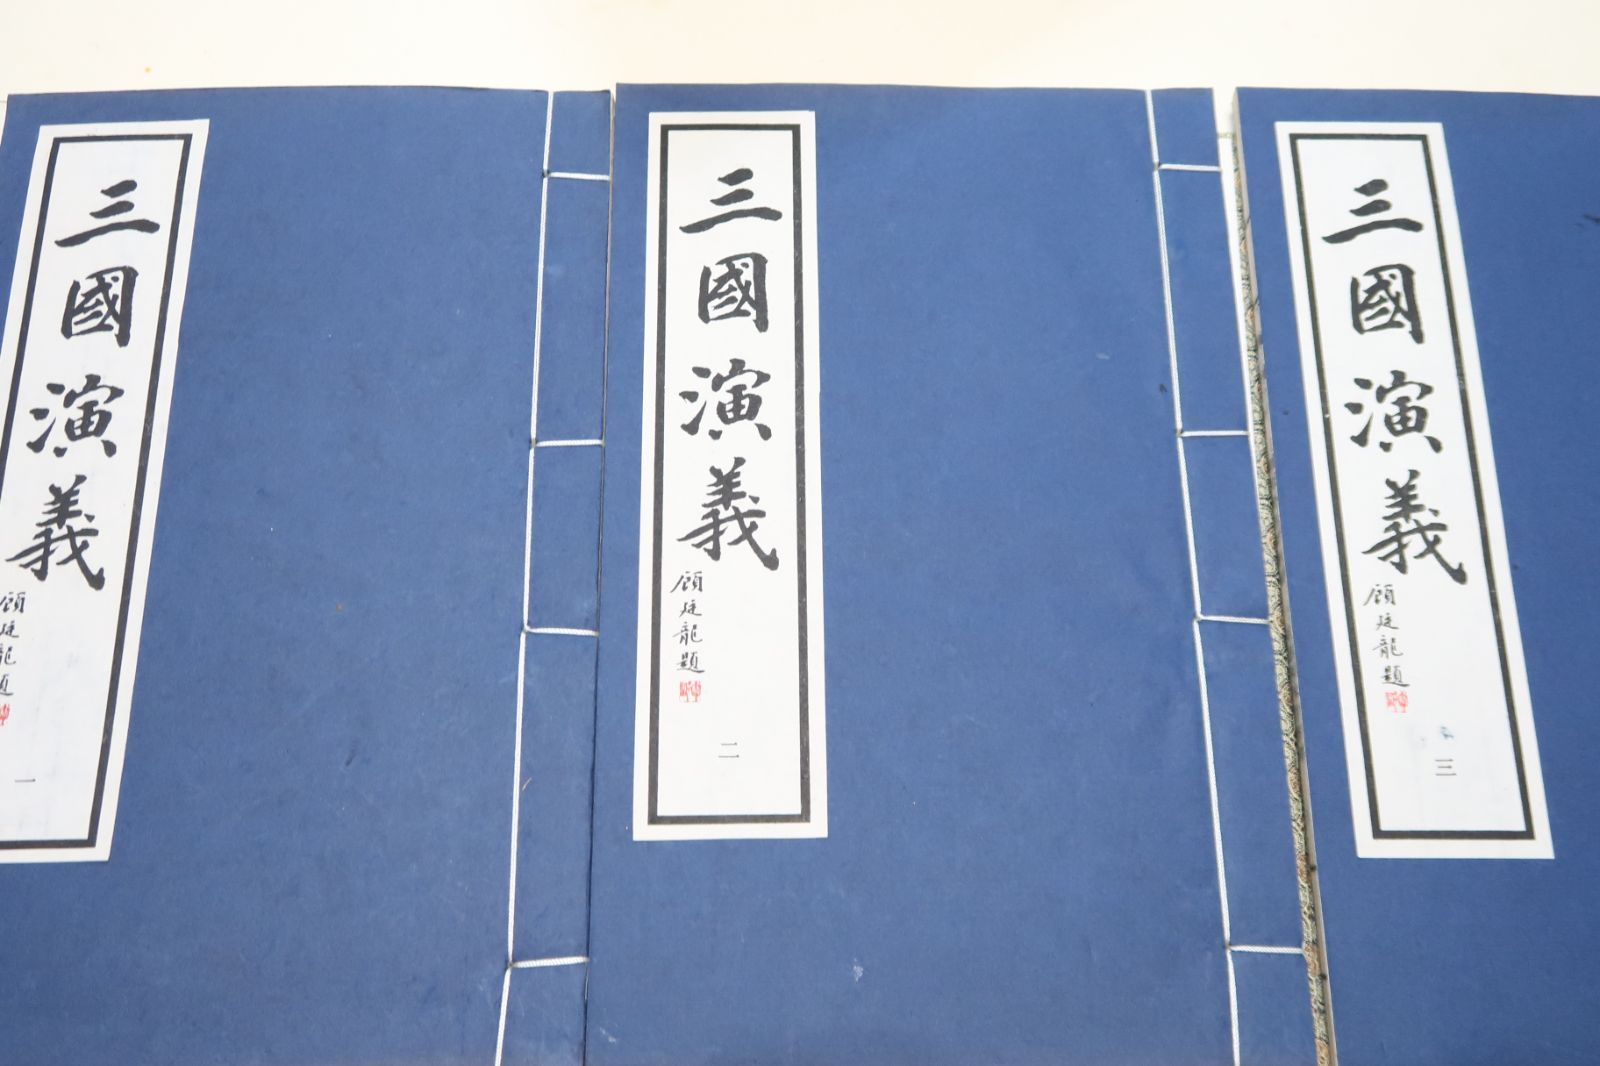 三國演義
顧廷龍題
一
三國演義
顧廷龍題
二
三國演義
顧廷龍題
三